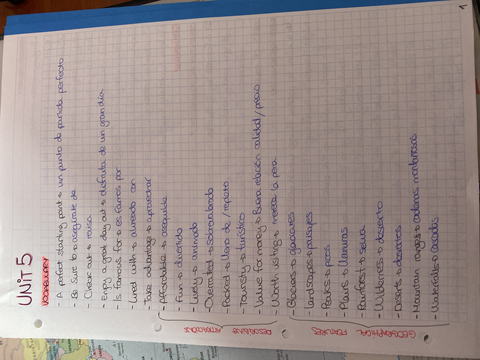 UNIT 5
VOCABULARY
- A perfect starting point → un punto de partida perfecto
- Be sure to → asegurate de
- Check out → revisa
- Enjoy a great day out → disfruta de un gran día
- Is famous for → es famoso por
- Lined with → alineado con
- Take advantage → aprovechar
DESCRIBING ATTRACTIONS
- Affordable → asequible
- Fun → divertido
- Lively → animado
- Overrated → sobrevalorado
- Packed → lleno de / repleto
- Touristy → turístico
- Value for money → Buena relación calidad / precio
- Worth visiting → merece la pena
GEOGRAPHICAL FEATURES
- Glaciers → glaciares
- Landscapes → paisajes
- Peaks → picos
- Plains → llanuras
- Rainforest → selva
- Wilderness → desierto
- Deserts → desiertos
- Mountain ranges → cadenas montañosas
- Waterfalls → cascadas
1